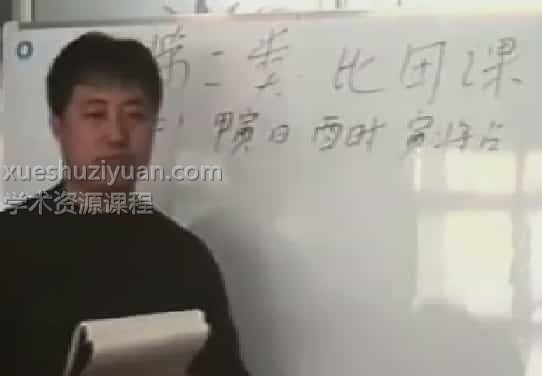 第二类 比用课
甲寅日 酉时 寅将占
xueshuziyuan.com
学术资源课程